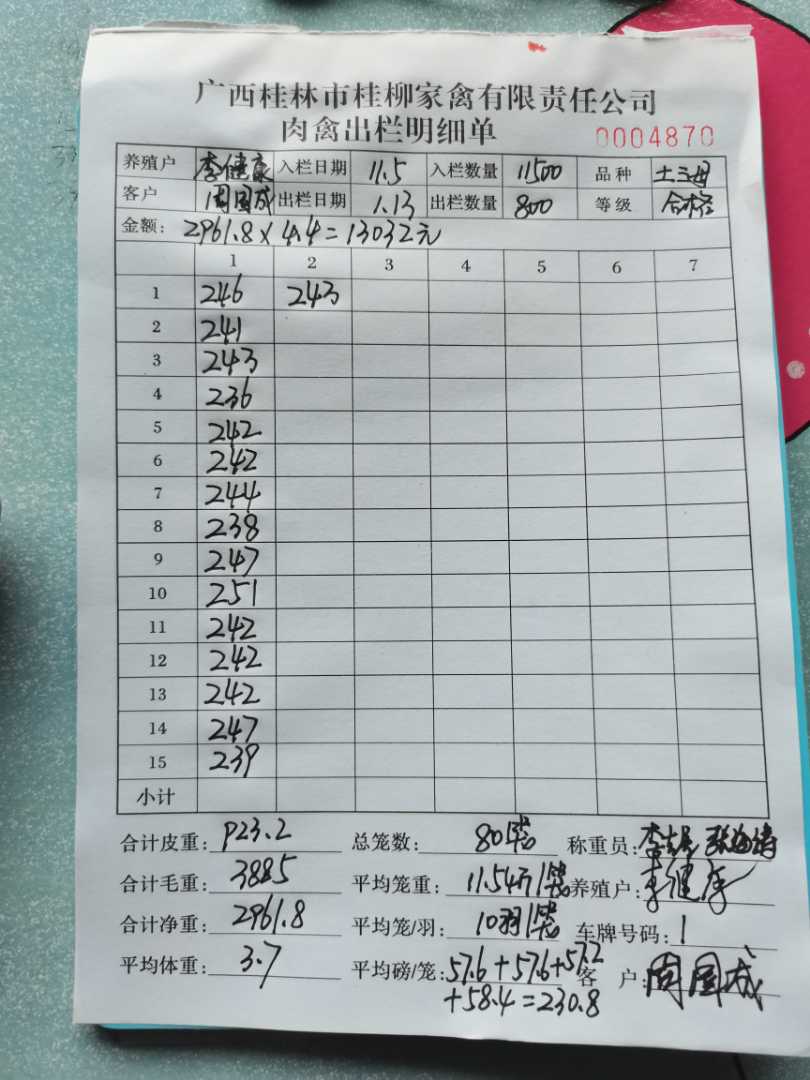 广西桂林市桂柳家禽有限责任公司
肉禽出栏明细单 0004870
养殖户 李健康 入栏日期 11.5 入栏数量 11500 品种 土三母
客户 周国成 出栏日期 1.13 出栏数量 800 等级 合格
金额: 2961.8×4.4=13032元
1 2 3 4 5 6 7
1 246 243
2 241
3 243
4 236
5 242
6 242
7 244
8 238
9 247
10 251
11 242
12 242
13 242
14 247
15 239
小计
合计皮重: 923.2 总笼数: 80 称重员:
合计毛重: 3885 平均笼重: 11.54 养殖户: 李健康
合计净重: 2961.8 平均笼/羽: 10羽 车牌号码: 1
平均体重: 3.7 平均磅/笼: 57.6+57.6+57.2 客户: 周国成
+58.4=230.8